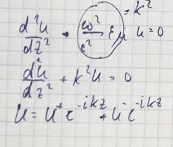 = k²
d²u/dz² + ω²/c² εμ u = 0
d²u/dz² + k²u = 0
u = u⁺e^{-ikz} + u⁻e^{-ikz}